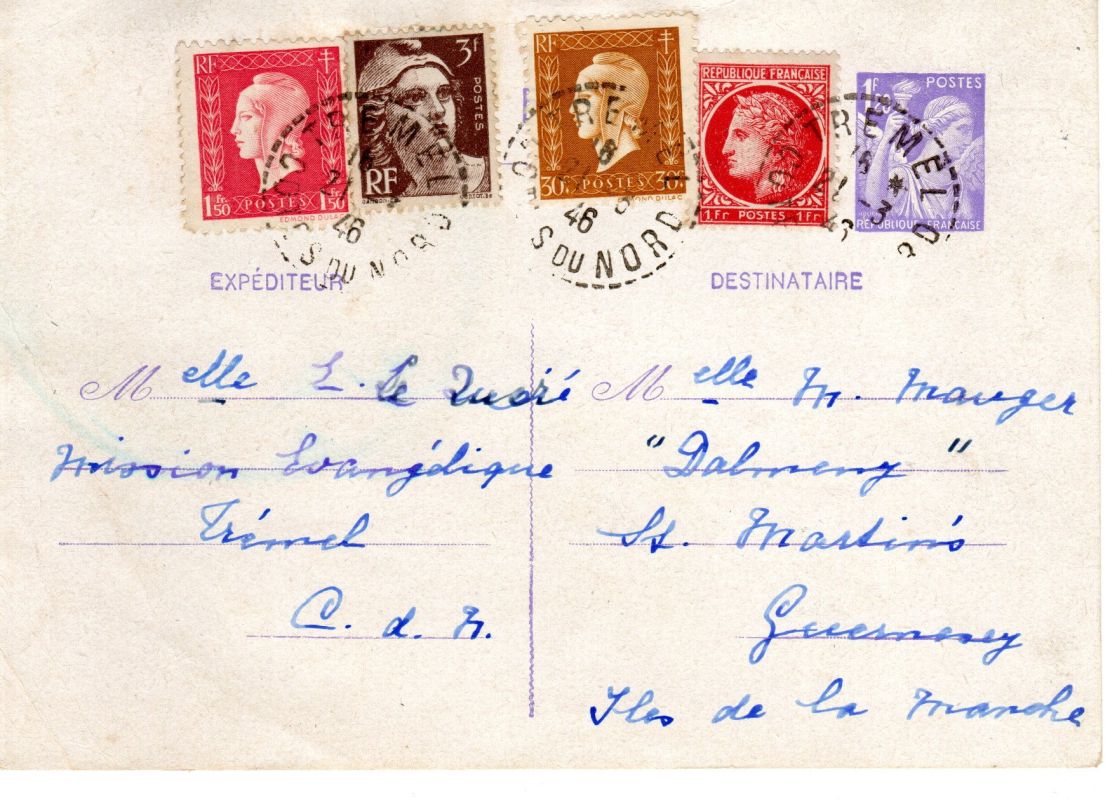 RF
1 Fr. 50 POSTES 1 50
EDMOND DULAC
3f
POSTES
RF
GANDON
RF
30c. POSTES 30c.
EDMOND DULAC
RÉPUBLIQUE FRANÇAISE
1 Fr POSTES 1 Fr
1F
POSTES
RÉPUBLIQUE FRANÇAISE
TREMEL
16
21 -3
46
CÔTES DU NORD
EXPÉDITEUR
DESTINATAIRE
Melle L. Le Quéré
Mission Evangélique
Trémel
C. d. N.
Melle M. Mauger
"Dalmeny"
St. Martin's
Guernesey
Iles de la Manche